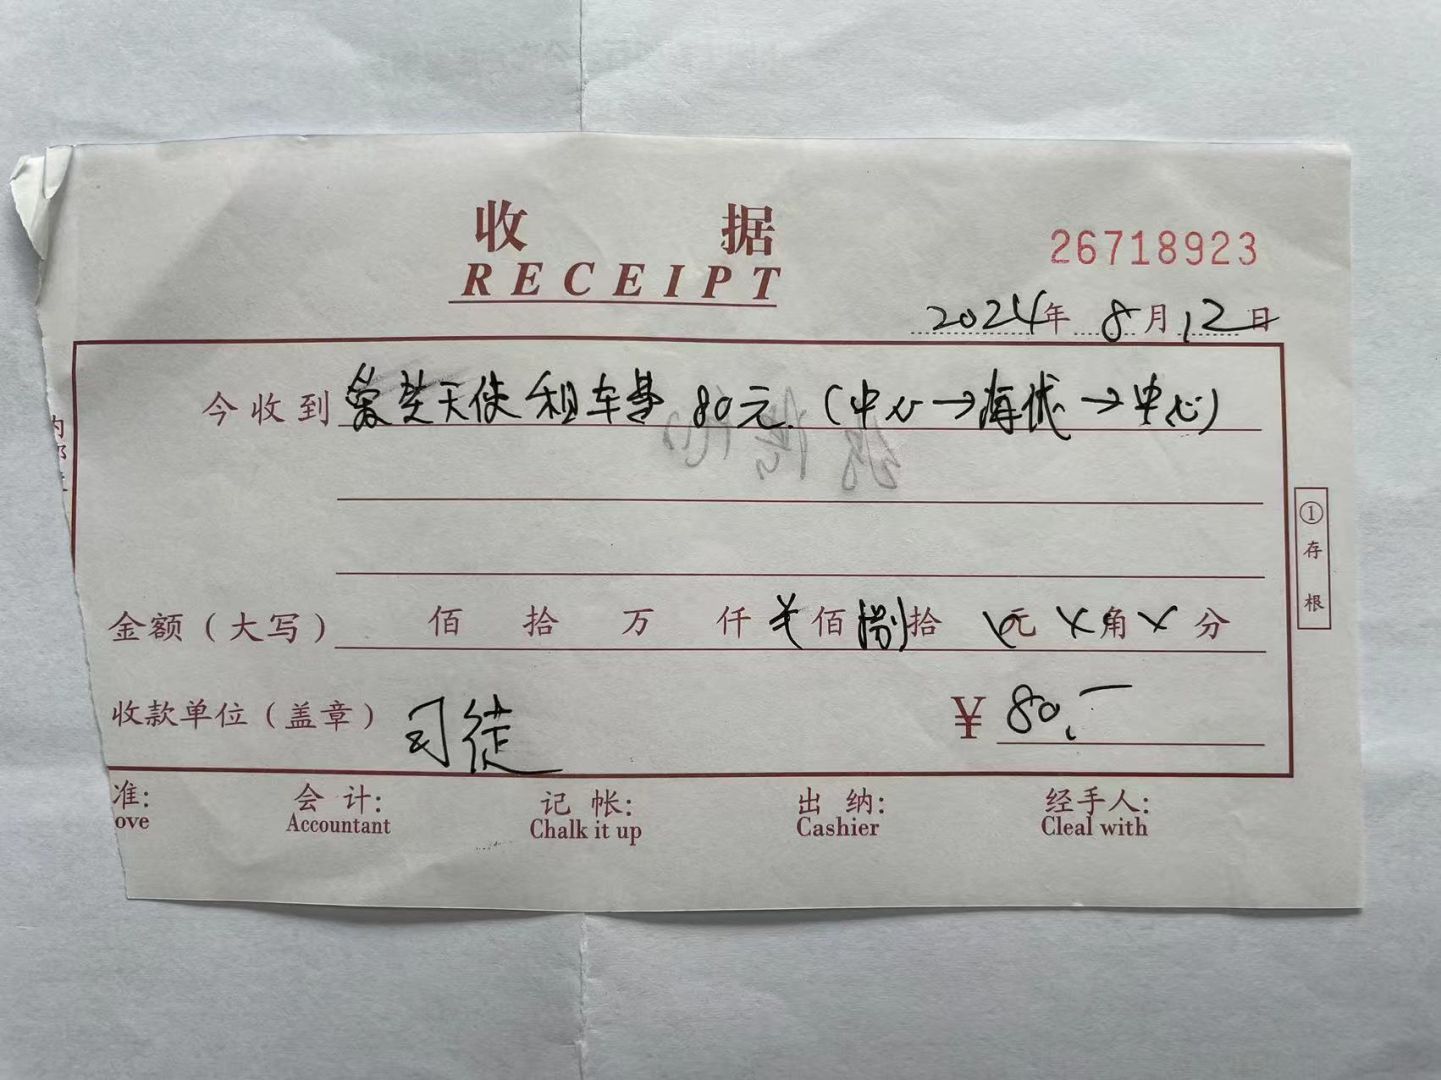 收据
RECEIPT
26718923
2024年8月12日
今收到 爱芝天使租车费 80元.（中心→海优→中心）
①存根
金额（大写） 佰 拾 万 仟 佰 捌拾 元 角 分
收款单位（盖章） 司徒 ¥ 80.-
准: 会计: 记帐: 出纳: 经手人:
ove Accountant Chalk it up Cashier Cleal with